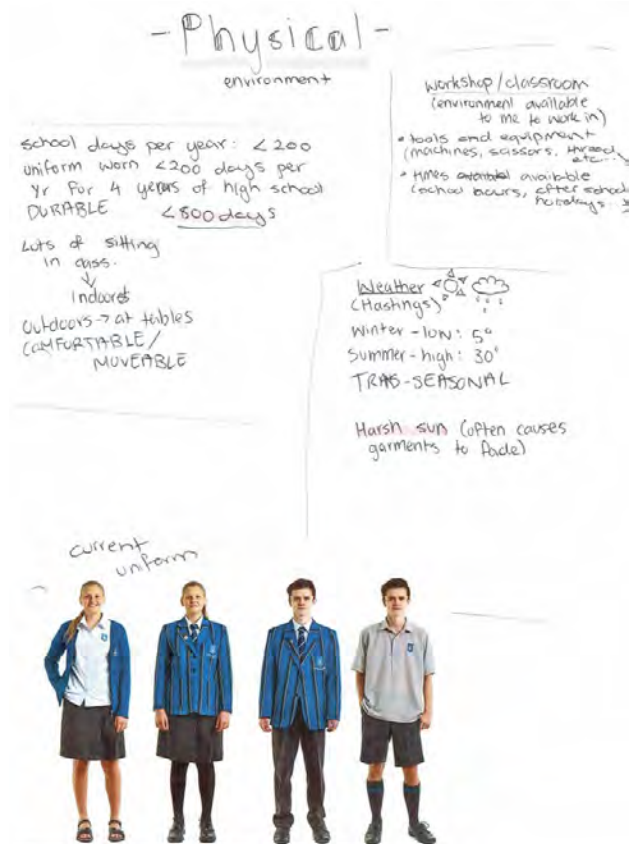 - Physical -
environment
school days per year: <200
uniform worn <200 days per
yr for 4 years of high school
DURABLE <800 days
Lots of sitting
in class.
Indoors
Outdoors → at tables
COMFORTABLE/
MOVEABLE
workshop/classroom
(environment available
to me to work in)
• tools and equipment
(machines, scissors, thread,
etc...)
• times available
(school hours, after school,
holidays..)
Weather
(Hastings)
Winter - low: 5°
Summer - high: 30°
TRAS-SEASONAL
Harsh sun (often causes
garments to fade)
current
uniform